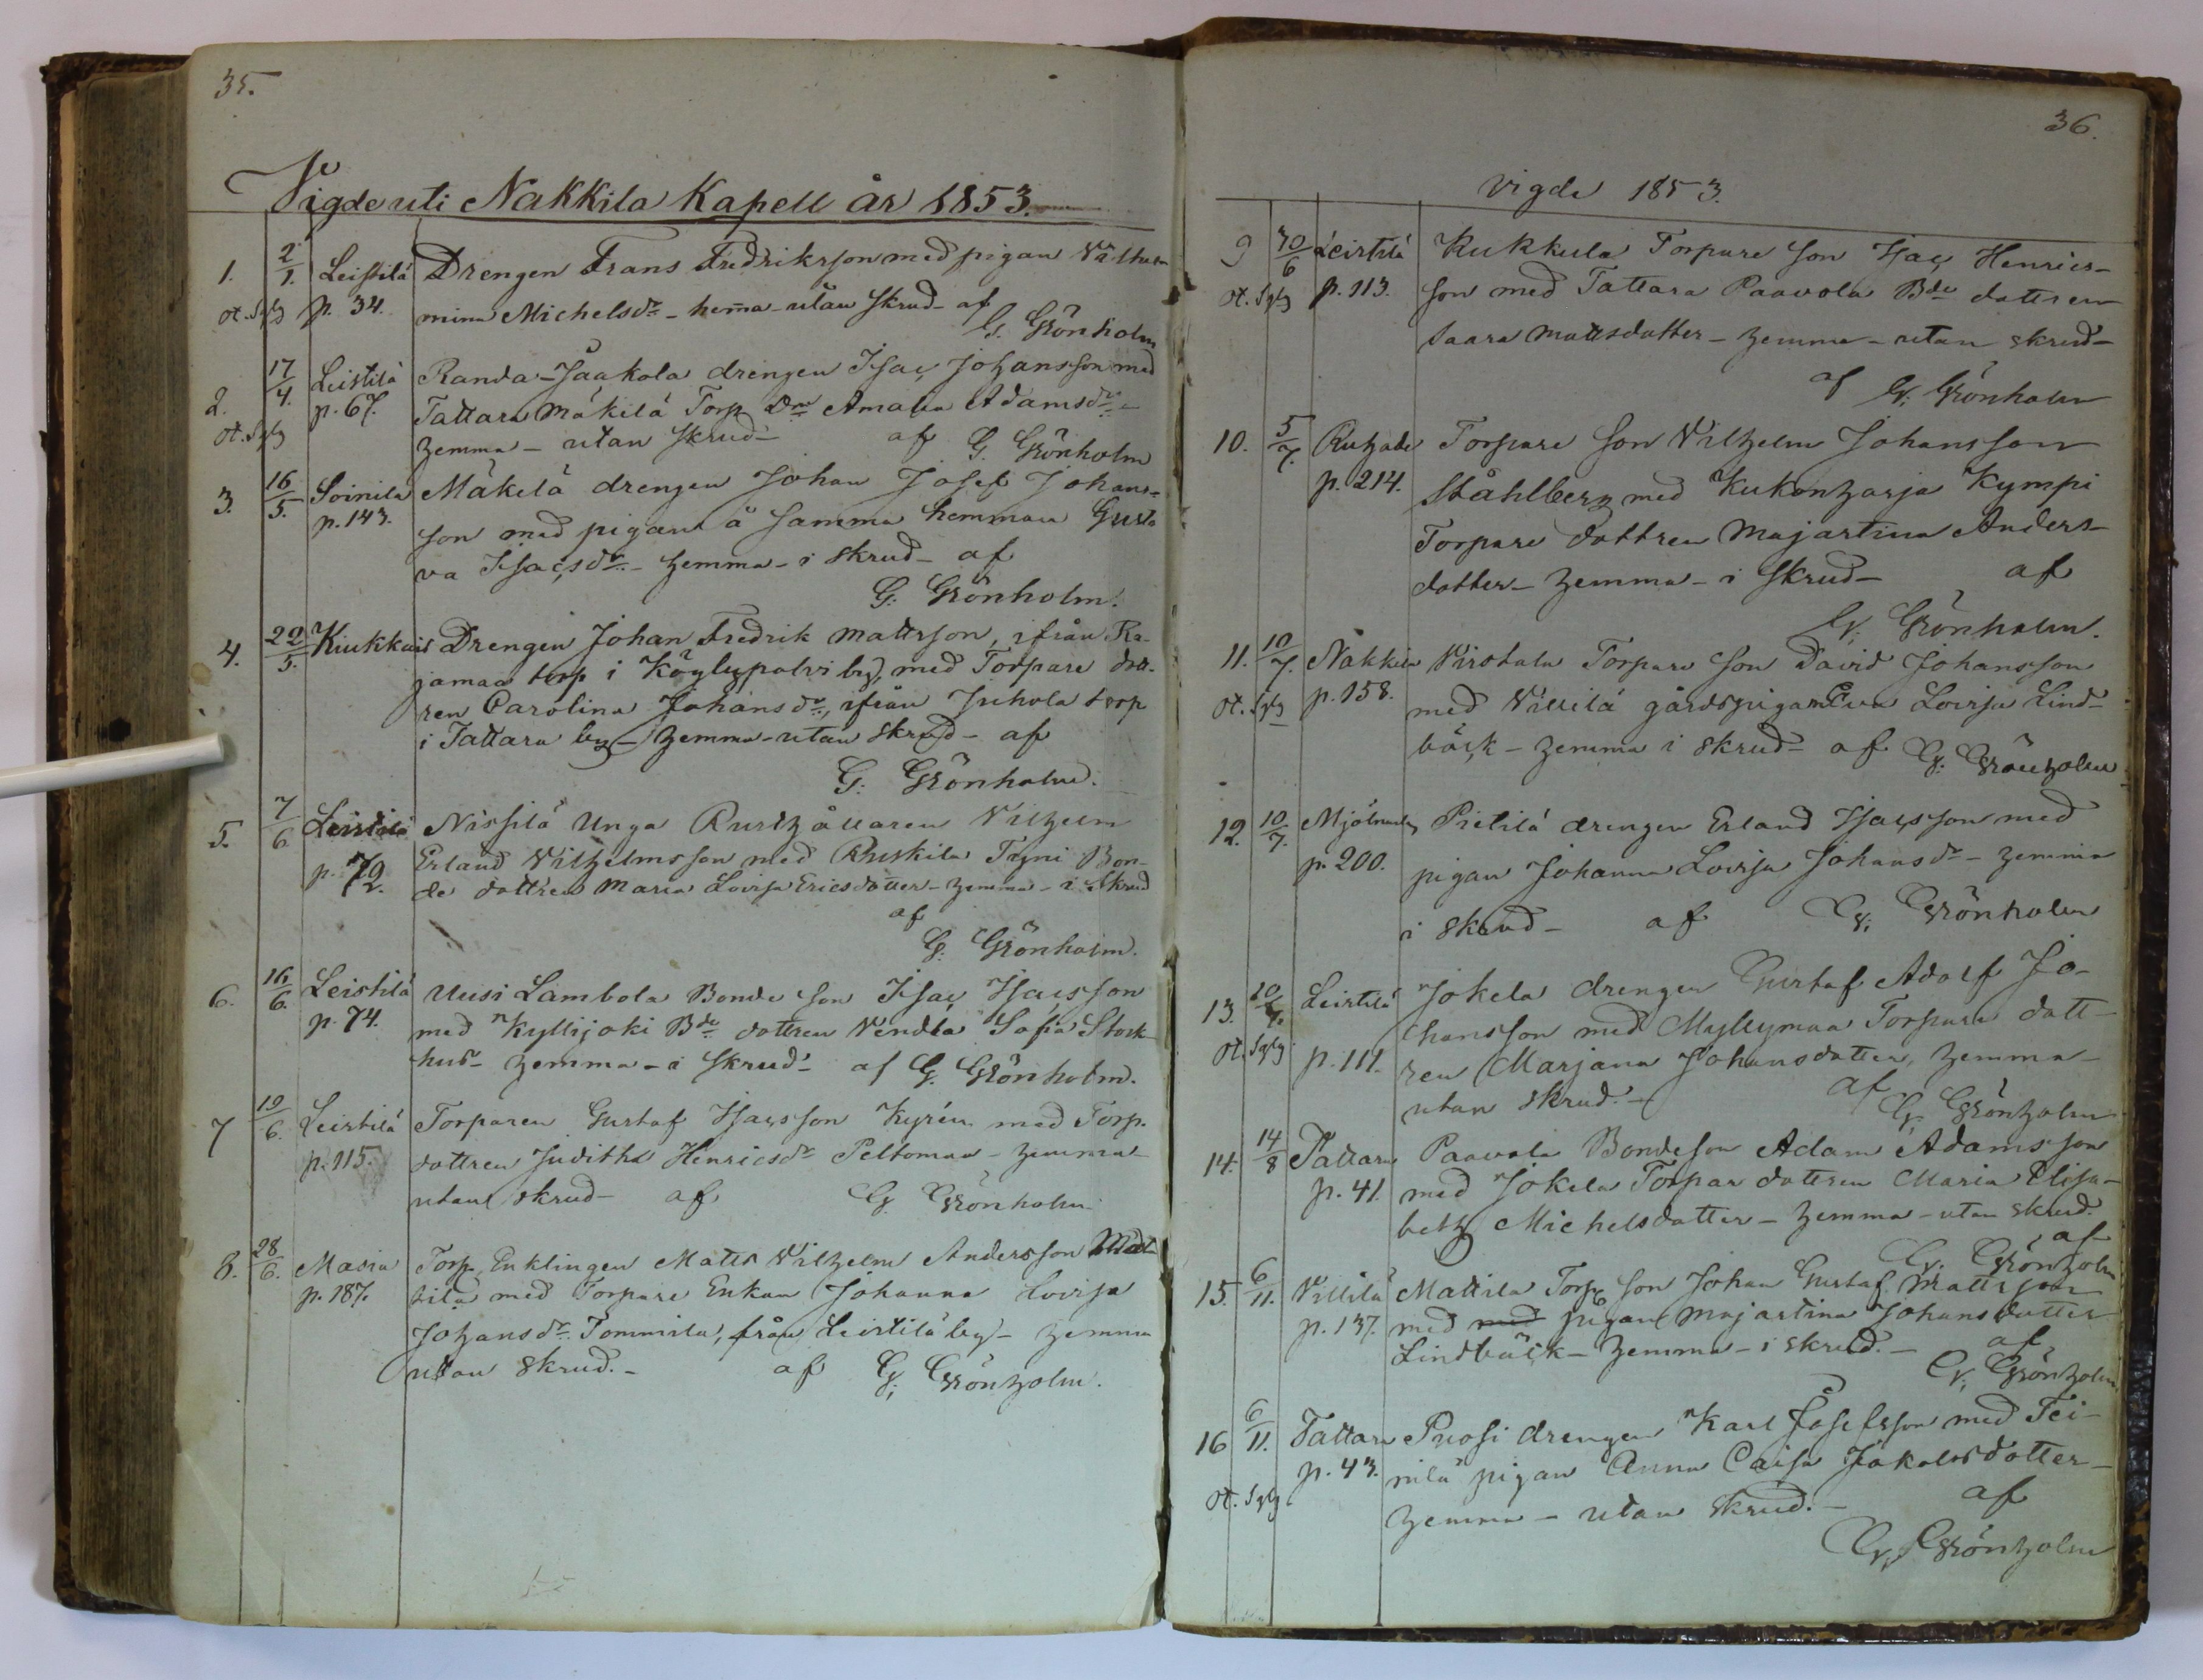 35.
Vigde uti Nakkila Kapell år 1853.
1. 2/1. Leistilä Drengen Frans Fredriksson med pigan Vilhel-
ot. Sglg p. 34. mina Michelsdr - hem̄a - utan skrud - af
G. Grönholm
2. 17/4. Leistilä Randa-Jaakola drengen Isac Johansson med
p. 67. Tattara Mäkilä Torp. Dren Amalia Adamsdr -
ot. Sglg hemma - utan skrud - af G. Grönholm
3. 16/5. Soinila Mäkelä drengen Johan Josef Johans-
p. 143. son med pigan å samma hemman Gusta
va Isacsdr - hemma - i skrud - af
G. Grönholm.
4. 22/5. Kiukkais Drengen Johan Fredrik Mattsson, ifrån Ra-
jamaa torp i Köylypolvi by, med Torpare dott-
ren Carolina Johansdr, ifrån Juhola torp
i Tattara by - hemma - utan skrud - af
G. Grönholm.
5. 7/6. Leistilä Nissilä Unga Rusthållaren Vilhelm
p. 72. Erland Vilhelmsson med Ruskila Tyni Bon-
de dottren Maria Lovisa Ericsdotter - hemma - i skrud
af
G. Grönholm.
6. 16/6. Leistilä Uusi Lambola Bonde son Isac Isacsson
p. 74. med Kyllijoki Bde dottren Vendla Sofia Stock-
hus - hemma - i skrud - af G. Grönholm.
7 19/6. Leistilä Torparen Gustaf Isacsson Kyrén med Torp.
p. 115. dottren Juditha Henricsdr Peltomaa - hemma -
utan skrud - af G. Grönholm
8. 28/6. Masia Torp. Enklingen Matts Vilhelm Andersson Mat-
p. 187. tila med Torpare Enkan Johanna Lovisa
Johansdr Tommila, från Leistilä by - hemma
utan skrud. - af G. Grönholm.
36.
Vigde 1853.
9 30/6 Leistilä Kukkula Torpare son Isac Henrics-
ot. Sglg p. 113. son med Tattara Paavola Bde dottren
Saara Mattsdotter - hemma - utan skrud -
af G. Grönholm
10. 5/7. Torpare son Vilhelm Johansson
p. 214. Ståhlberg med Kukonharja Kympi
Torpare dottren Majastina Anders-
dotter - hemma - i skrud - af
G. Grönholm.
11. 10/7. Nakkila Virstala Torpare son David Johansson
ot. Sglg p. 158. med Villilä gårdspigan Eva Lovisa Lind-
bäck - hemma i skrud - af G. Grönholm
12. 10/7. Pietilä drengen Erland Isacsson med
p. 200. pigan Johanna Lovisa Johansdr - hemma
i skrud - af G. Grönholm
13. 20/7. Leistilä Jokela drengen Gustaf Adolf Jo-
ot. Sglg p. 111. hansson med Myllymaa Torpare dott-
ren Marjana Johansdotter, hemma -
utan skrud. - af G. Grönholm
14. 14/8 Tattara Paavola Bondeson Adam Adamsson
p. 41. med Jokela Torpar dottren Maria Elisa-
beth Michelsdotter - hemma - utan skrud.
af
G. Grönholm
15. 6/11. Villilä Mattila Torp. son Johan Gustaf Mattsson
p. 137. med med pigan Majastina Johansdotter
Lindbäck - hemma - i skrud. - af
G. Grönholm
16 6/11. Tattara Puosi drengen Karl Josefsson med Tei-
p. 43. nilä pigan Anna Caisa Jakobsdotter -
ot. Sglg hemma - utan skrud. - af
G. Grönholm